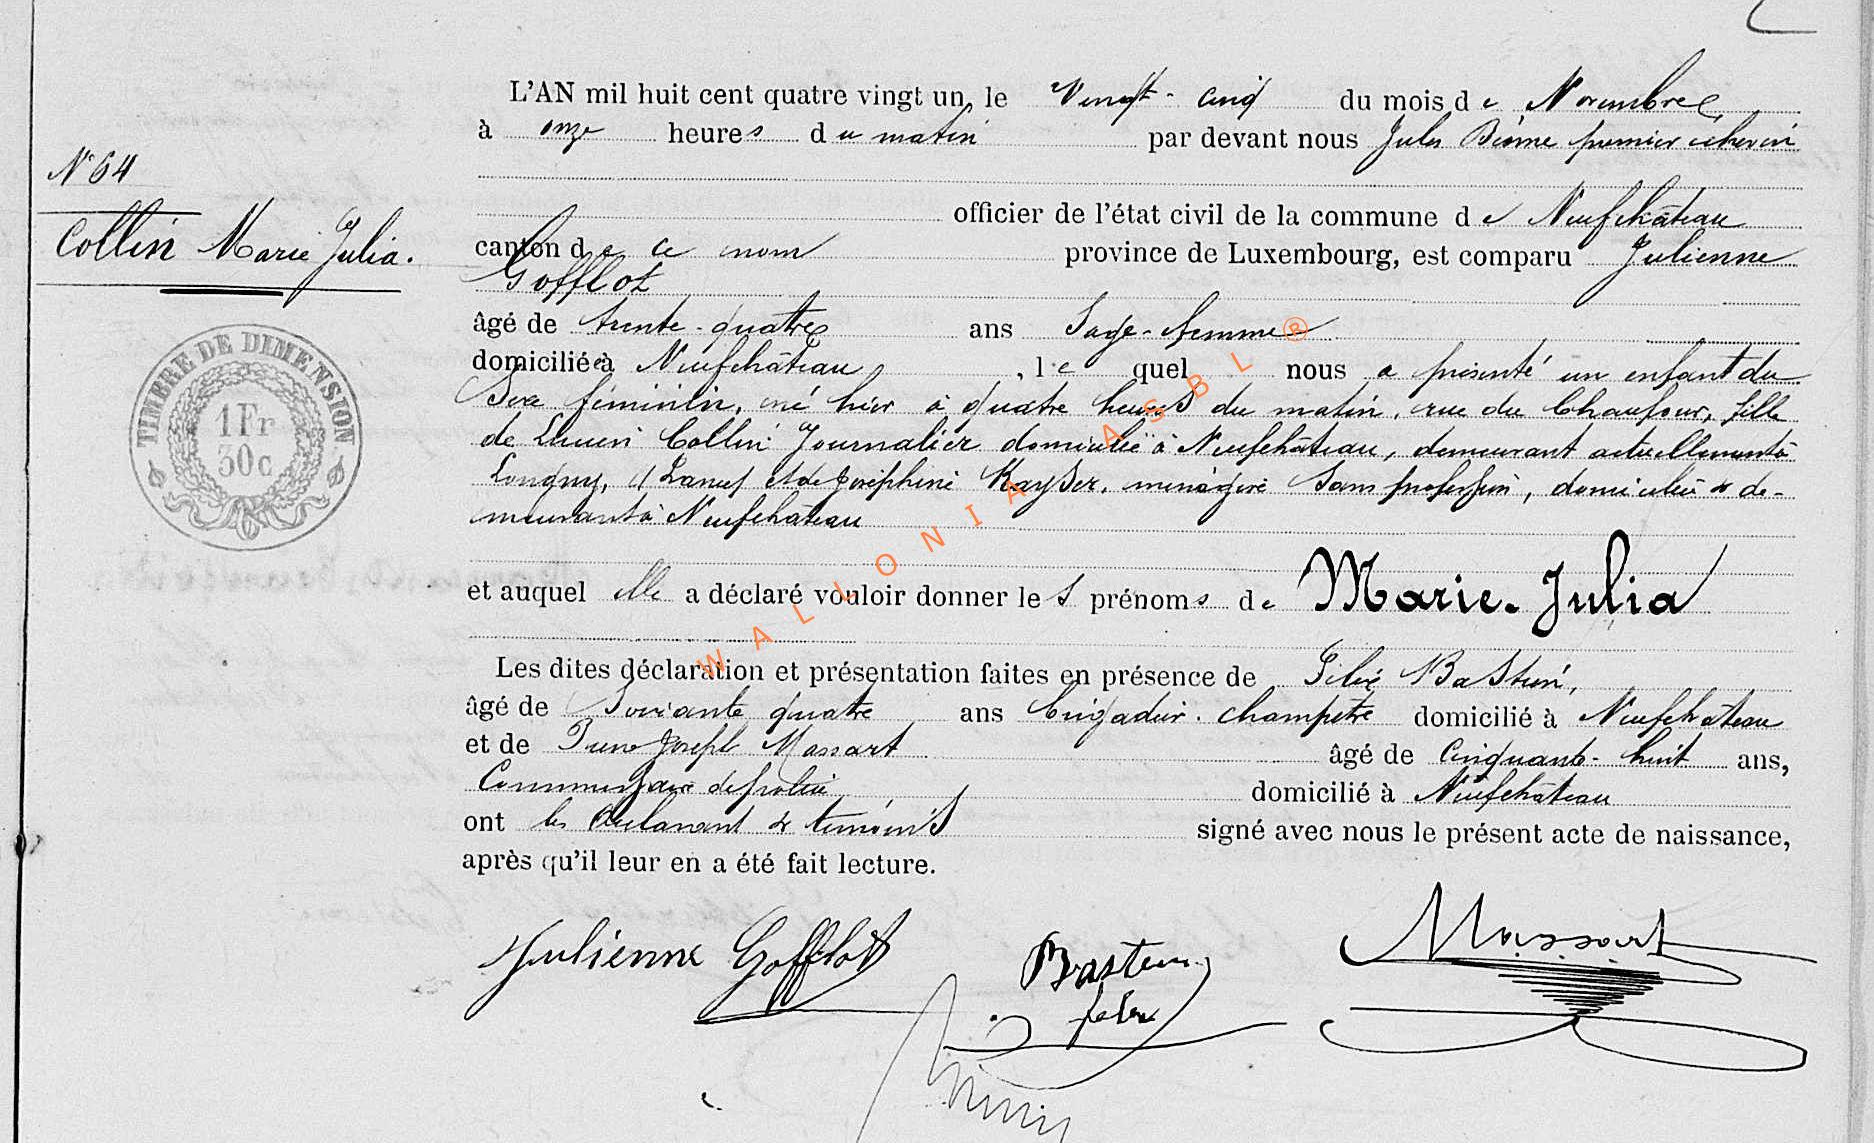 L'AN mil huit cent quatre vingt un, le Vingt-cinq du mois de Novembre
à onze heures du matin par devant nous Jules premier échevin
N° 64
officier de l'état civil de la commune de Neufchâteau
Collin Marie Julia.
canton de ce nom province de Luxembourg, est comparu Julienne
Gofflot
âgé de trente-quatre ans Sage-femme
domiciliée à Neufchâteau, le quel nous a présenté un enfant du
Sexe féminin, né hier à quatre heures du matin, rue du Chaufour, fille
de Lucien Collin Journalier domicilié à Neufchâteau, demeurant actuellement à
Longwy, et de Joséphine Kayser, ménagère sans profession, domiciliée & de-
meurant à Neufchâteau
TIMBRE DE DIMENSION
1 Fr
30 c
WALLONIA ASBL ®
et auquel elle a déclaré vouloir donner les prénoms de Marie-Julia
Les dites déclaration et présentation faites en présence de Félix Bastin,
âgé de Soixante quatre ans brigadier-champêtre domicilié à Neufchâteau
et de Joseph Massart âgé de Cinquante-huit ans,
Commissaire de police domicilié à Neufchâteau
ont les déclarant & témoins signé avec nous le présent acte de naissance,
après qu'il leur en a été fait lecture.
Julienne Gofflot
Massart